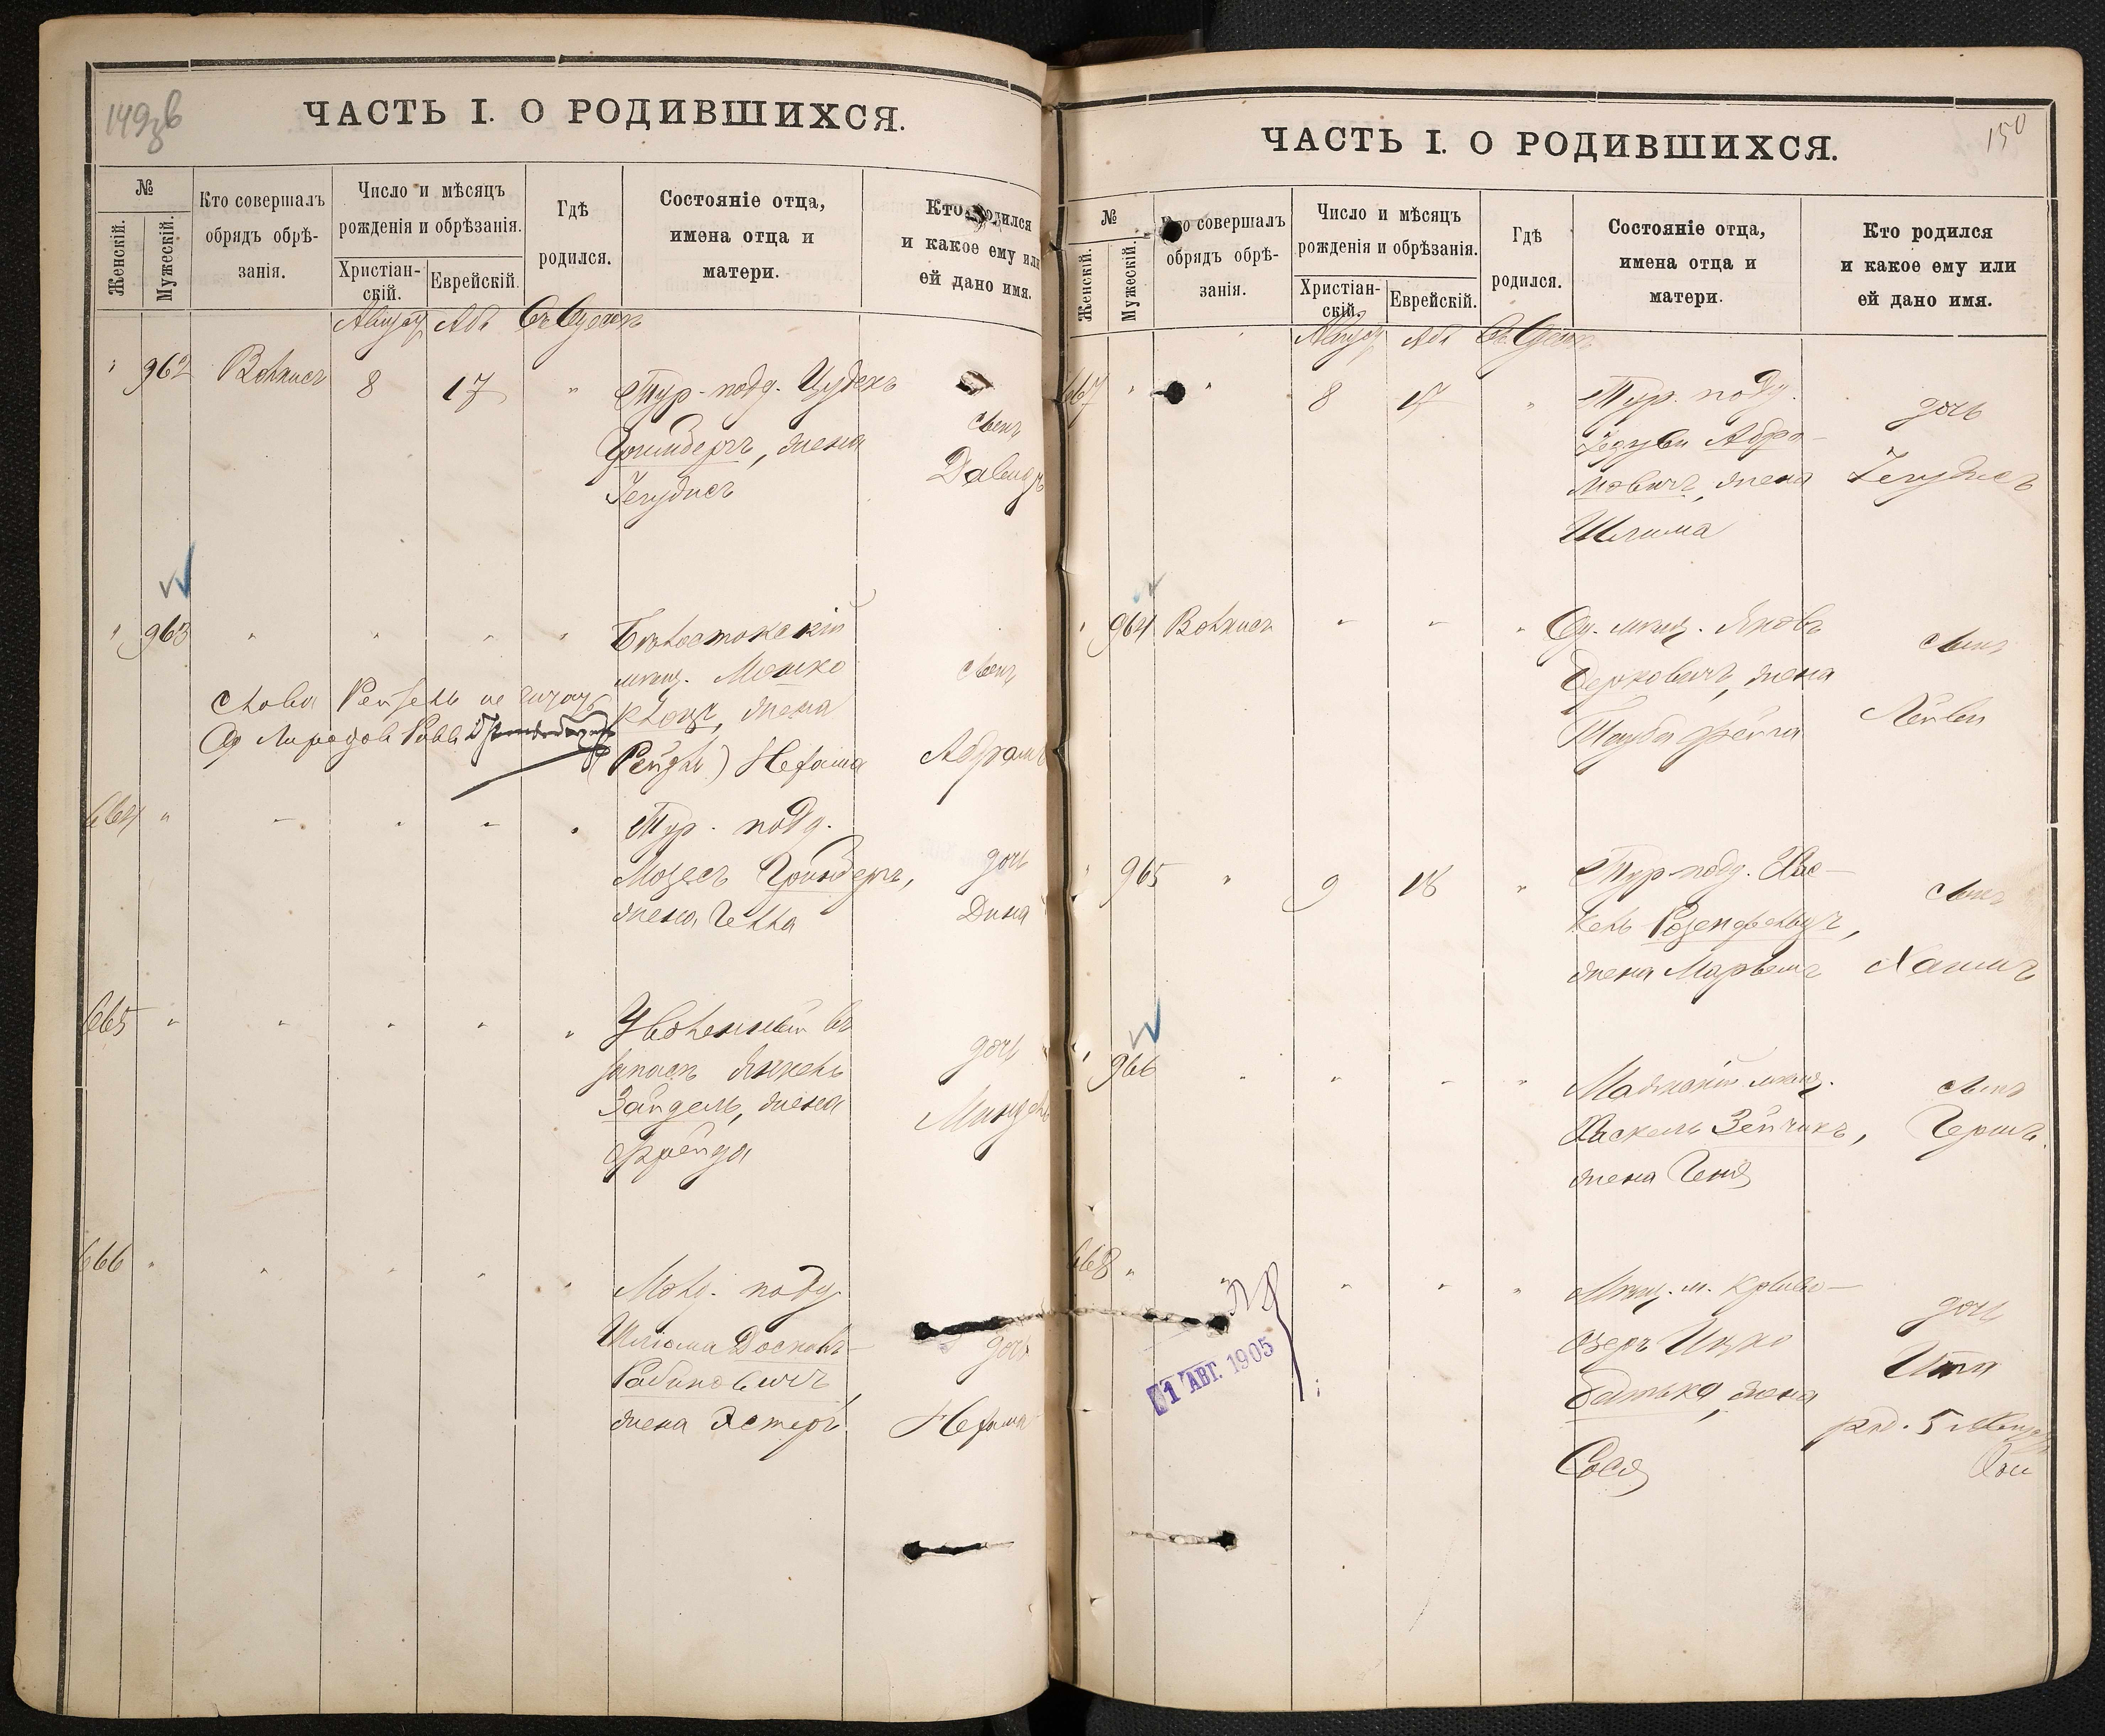 149 об
ЧАСТЬ I. О РОДИВШИХСЯ.
№
Женскій.
Мужескій.
Кто совершалъ
обрядъ обрѣ-
занія.
Число и мѣсяцъ
рожденія и обрѣзанія.
Христіан-
скій.
Еврейскій.
Гдѣ
родился.
Состояніе отца,
имена отца и
матери.
Кто родился
и какое ему или
ей дано имя.
Августъ Абъ Въ Одессѣ
" 962 8 17 " Тур. подд.
Гринбергъ, жена
Іегудисъ
сынъ
Давидъ
" 963 " " " "
Бѣлостокскій
мѣщ. Мошко
Клоцъ, жена
(Рейзль) Нехама
сынъ
Абрамъ
Слова Рейзель не читать
Од. Равв.
664 " " " " "
Тур. подд.
Мозесъ Гринбергъ,
жена Гелла
дочь
Дина
665 " " " " "
Уволенный въ
запасъ Янкель
Зайдель, жена
Фрейда
дочь
666 " " " " "
подд.
Шліома
Рабиновичъ,
жена Эстеръ
дочь
Нехама
150
ЧАСТЬ I. О РОДИВШИХСЯ.
№
Женскій.
Мужескій.
Кто совершалъ
обрядъ обрѣ-
занія.
Число и мѣсяцъ
рожденія и обрѣзанія.
Христіан-
скій.
Еврейскій.
Гдѣ
родился.
Состояніе отца,
имена отца и
матери.
Кто родился
и какое ему или
ей дано имя.
Августъ Абъ Въ Одессѣ
667 " " 8 17 "
Тур. подд.
Абра-
мовичъ, жена
Шлима
дочь
Іегудисъ
" 964 " " "
Од. мѣщ. Яковъ
Берковичъ, жена
Тауба Фейга
сынъ
Лейви
" 965 " 9 18 "
Тур. подд. Хас-
кель Розенфельдъ,
жена Марьемъ
сынъ
Хаимъ
" 966 " " " "
мѣщ.
Хаскель Зейчикъ,
жена Геня
сынъ
Гершъ.
668 " " " " "
Мѣщ. м. Криво-
озеръ Ицко
Батько, жена
Сося
дочь
Ита
род. 5 Августа
1 АВГ. 1905